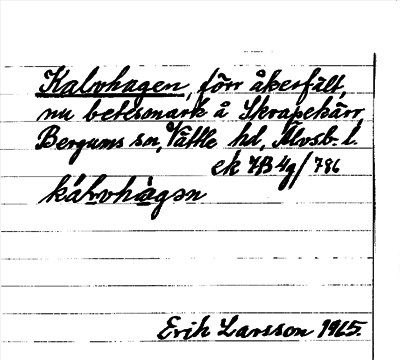 Kalvhagen, förr åkerfält,
nu betesmark å Skrapekärr,
Bergums sn, Vättle hd, Älvsb. l.
ek 7B 4g/786
kálvhàgən
Erik Larsson 1965.